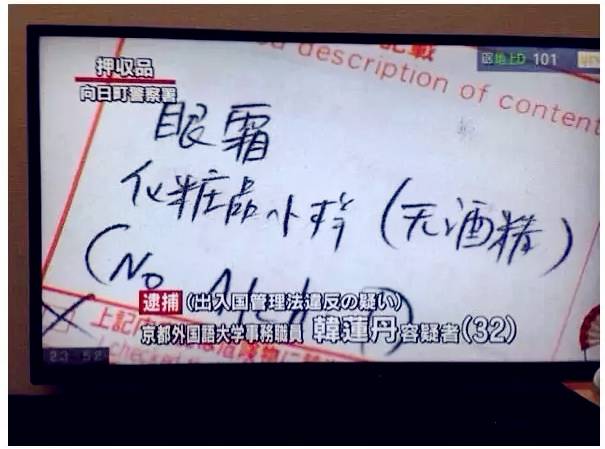 記載
description of content
区地上D 101
押収品
向日町警察署
眼霜
化粧品小样 (无酒精)
(No
逮捕 (出入国管理法違反の疑い)
京都外国語大学事務職員 韓蓮丹容疑者(32)
上記
険物に
23:52